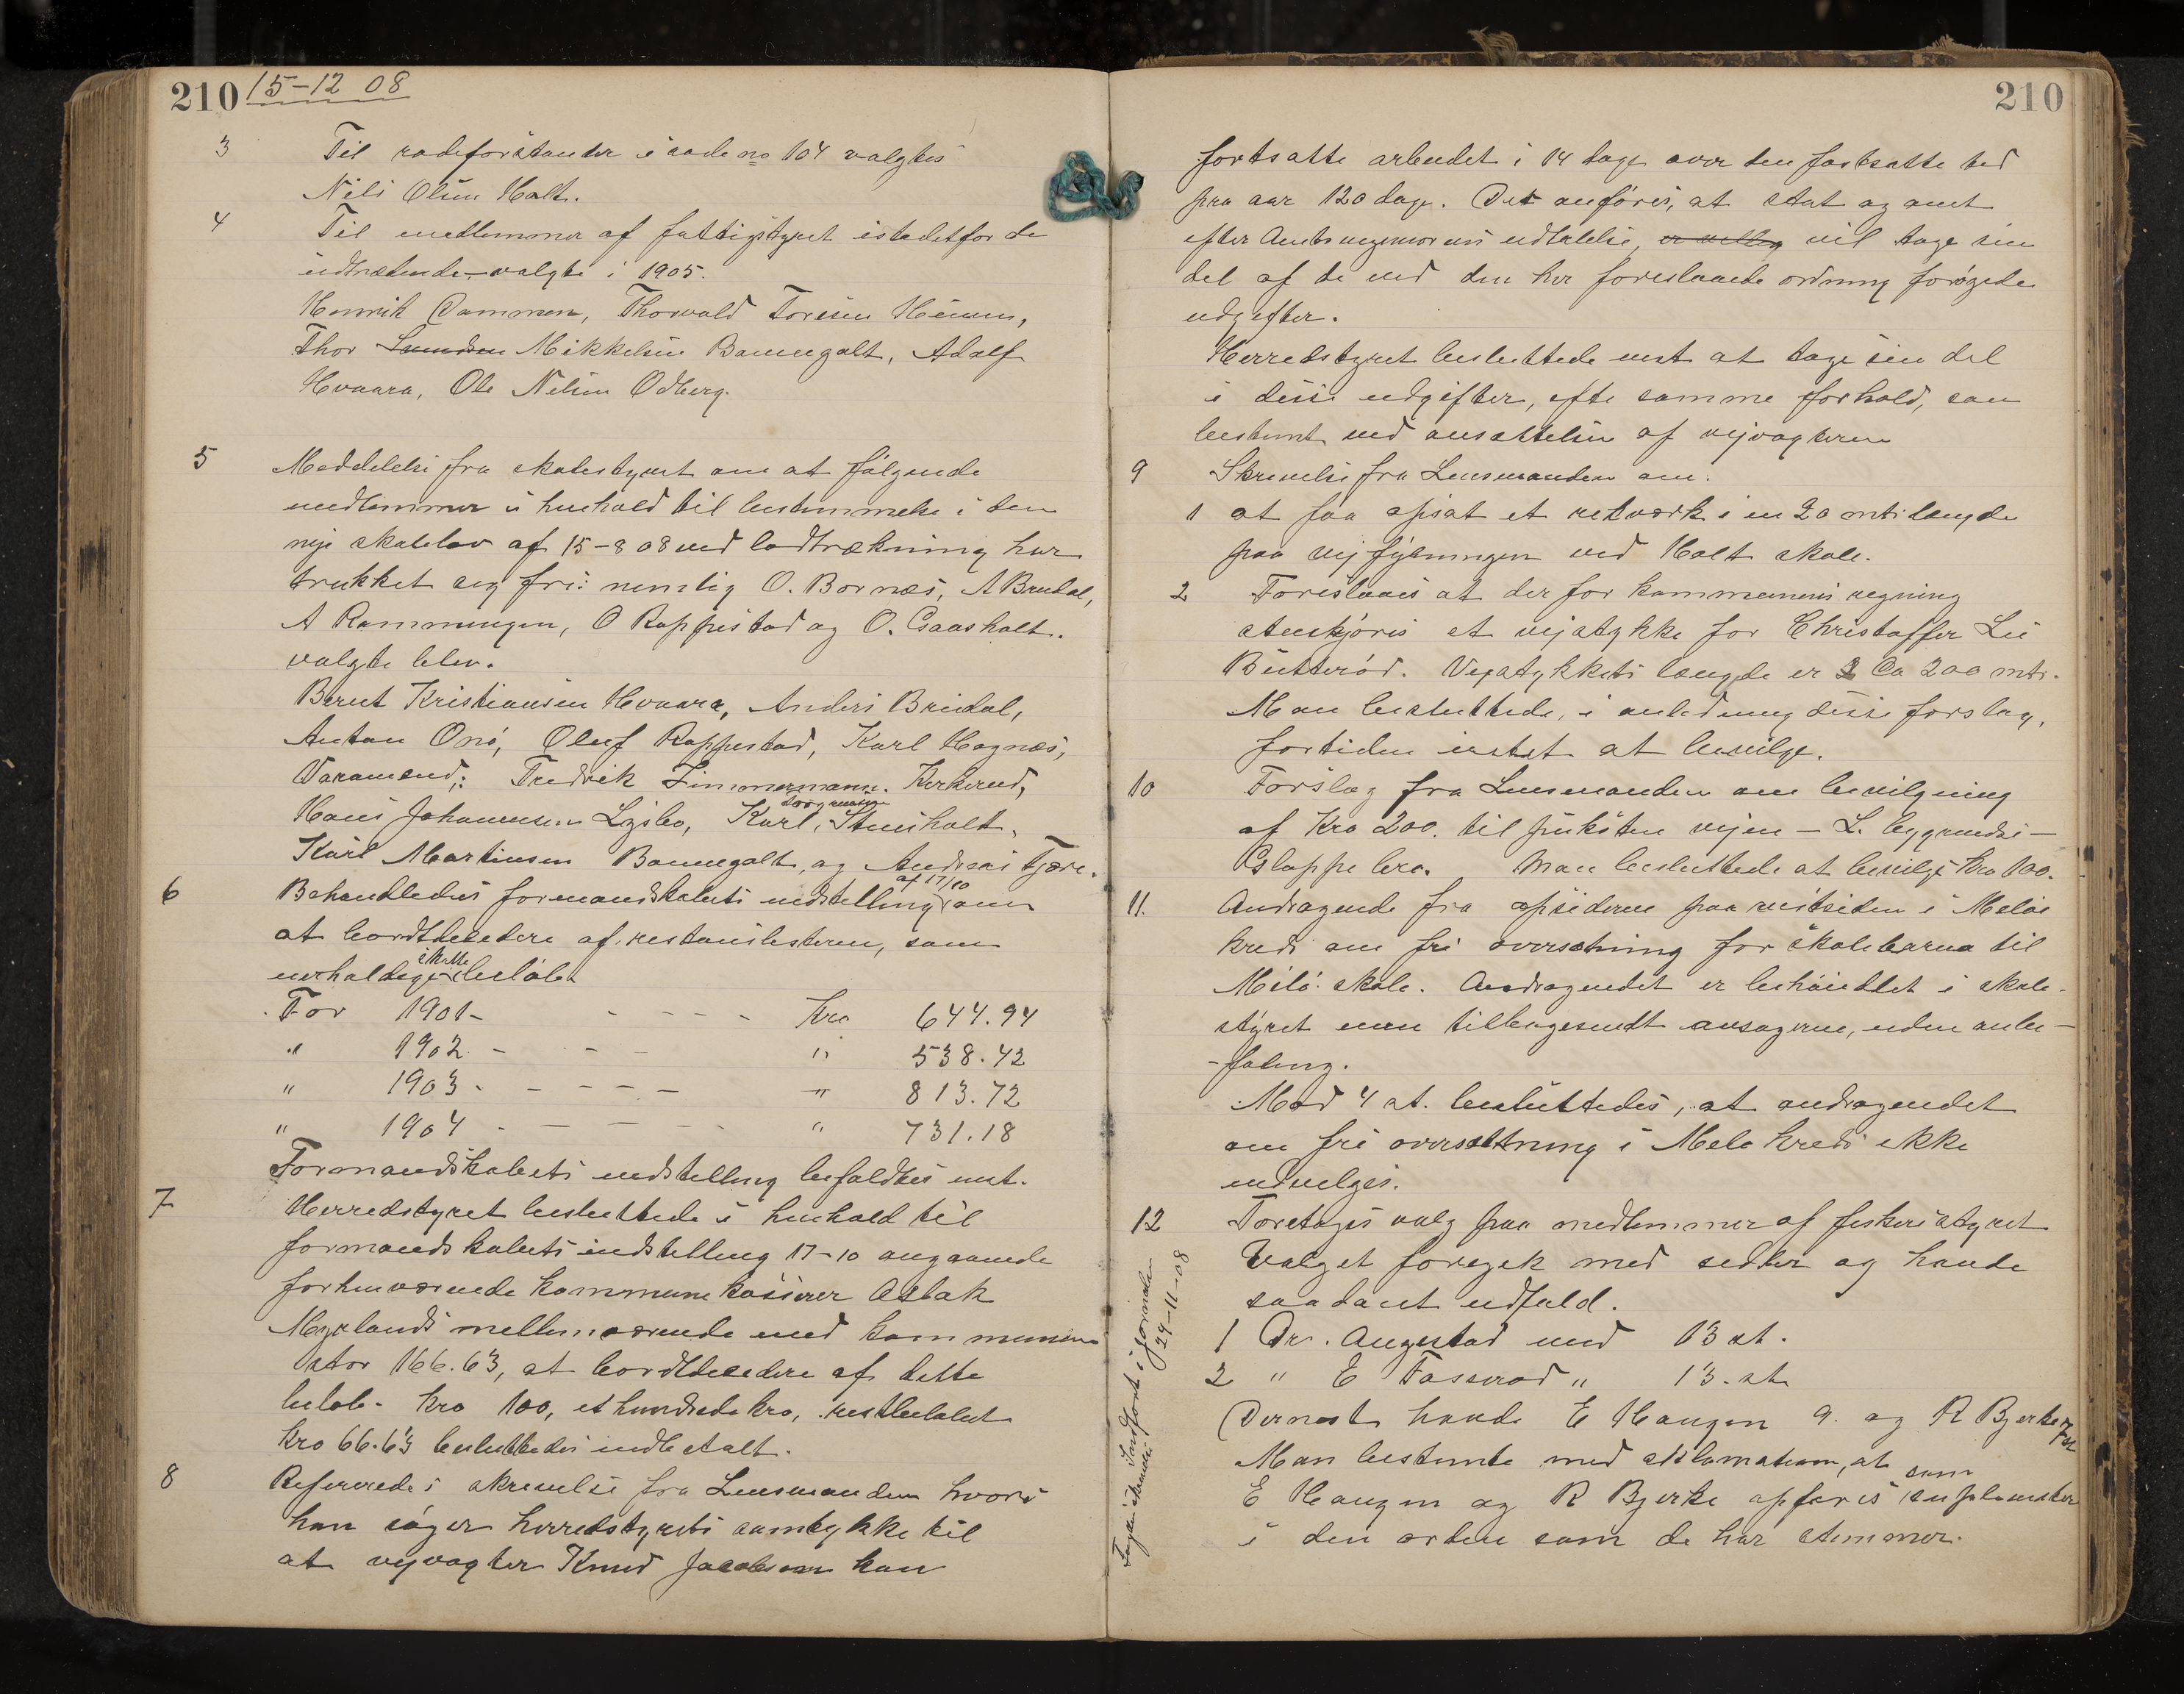 210 15-12 08
3 Til rodeforstander i rode no 104 valgtes
Nils Olsen Holt.
4 Til medlemmer af fattigstyret istedetfor de
udtrædende valgte i 1905.
Henrik Dammen, Thorvald Toresen Heimen,
Thor Svendsen Mikkelsen Bommegalt, Adolf
Hvaara, Ole Nilsen Odberg.
5 Meddelelse fra skolestyret om at følgende
medlemmer i henhold til bestemmelse i den
nye skolelov af 15-8 08 ved lodtrækning har
trukket sig fri: nemlig O. Bornæs, A Bredal,
A Ramningen, O Roppestad og O. Gaasholt.
valgte blev.
Bernt Kristiansen Hvaara, Anders Bredal,
Anton Onø, Oluf Roppestad, Karl Hagnæs,
Varamænd: Fredrik Zimmermann. Kerkerud,
Hans Johannesen Løsbo, Karl Stensholt,
Karl Martinsen Bommegalt, og Andreas Tjære.
6 Behandledes formandskabets indstilling af 17/10 om
at bortdecedere af restancelisterne, som
uerholdelige skatte beløbet
For 1901 - - - - - Kro 644.94
" 1902 - - - " 538.42
" 1903 - - - - - " 813.72
" 1904 - - - - - " 731.18
Formandskabets indstilling befaldtes enst.
7 Herredstyret besluttede i henhold til
formandskabets indstilling 17-10 angaaende
forhenværende kommunekasserer Aslak
Myrlands mellemværende med kommunen
stor 166.63, at bortdecedere af dette
beløb - kro 100, et hundrede kro, restbeløbet
kro 66.63 besluttedes indbetalt.
8 Refereredes skrivelse fra Lensmanden hvori
han søger herredstyrets samtykke til
at vejvogter Knud Jacobsen kan
210
fortsatte arbeidet i 14 dage over den fastsatte tid
pra aar 120 dage. Det anføres, at stat og amt
efter Amtsingeniørens udtalelse, er villig vil tage sin
del af de ved den her foreslaaede ordning forøgede
udgifter.
Herredstyret besluttede enst at tage sin del
i disse udgifter, efte samme forhold, som
bestemt ved ansættelsen af vejvogteren
9 Skrivelse fra Lensmanden om:
1 at faa opsat et rekværk i en 20 mtr længde
paa vejfylningen ved Holt skole.
2 Foreslaaes at der for kommunens regning
stenkjøres et vejstykke for Christoffer Lie
Butterød. Vejstykkets længde er Ca 200 mtr.
Man besluttede, i anledning disse forslag,
fortiden intet at bevilge.
10 Forslag fra Lensmanden om bevilgning
af Kro 200. til puksten vejen - L. byggrændse -
Gloppe bro. Man besluttede at bevilge kro 100.
11. Andragende fra opsiderne paa vestsiden i Meløe
kreds om fri oversætning for skolebarna til
Melø skole. Andragendet er behandlet i skole-
styret men tilbagesendt ansøgerne, uden anbe-
-faling.
Mod 4 st. besluttedes, at andragendet
om fri oversætning i Melø kreds ikke
indvilges.
12 Foretages valg paa medlemmer af fiskeristyret
Valget foregik med sedler og havde
saadant udfald.
1 Dr. Augestad med 13 st.
2 " E Fasserød " 13. st
Dernæst havde E Haugen 9. og R Bjerke 7 st
Man bestemte med aklamation, at
E Haugen og R Bjerke opføres som suplianter
i den orden som de har stemmer.
29-11-08